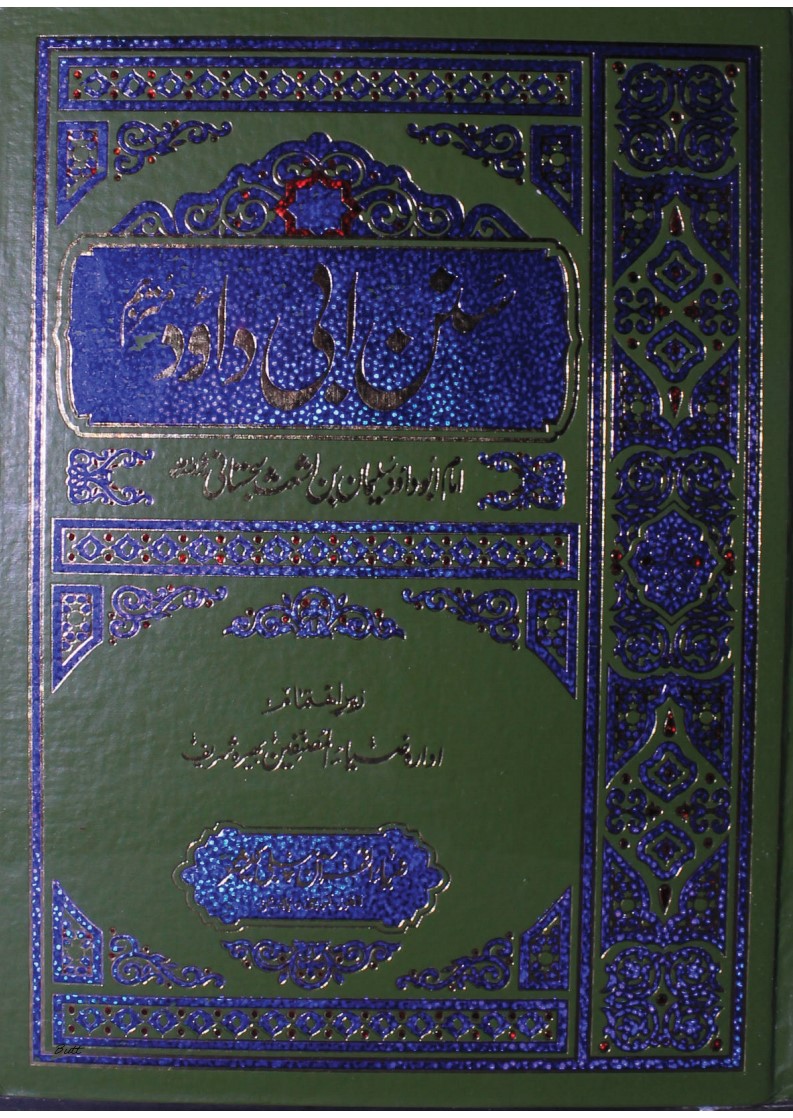 سنن ابی داؤد مترجم
امام ابو داؤد سلیمان بن اشعث سجستانی
زیر اہتمام
ادارہ ضیاء المصنفین بھیرہ شریف
ضیاء القرآن پبلی کیشنز
Butt